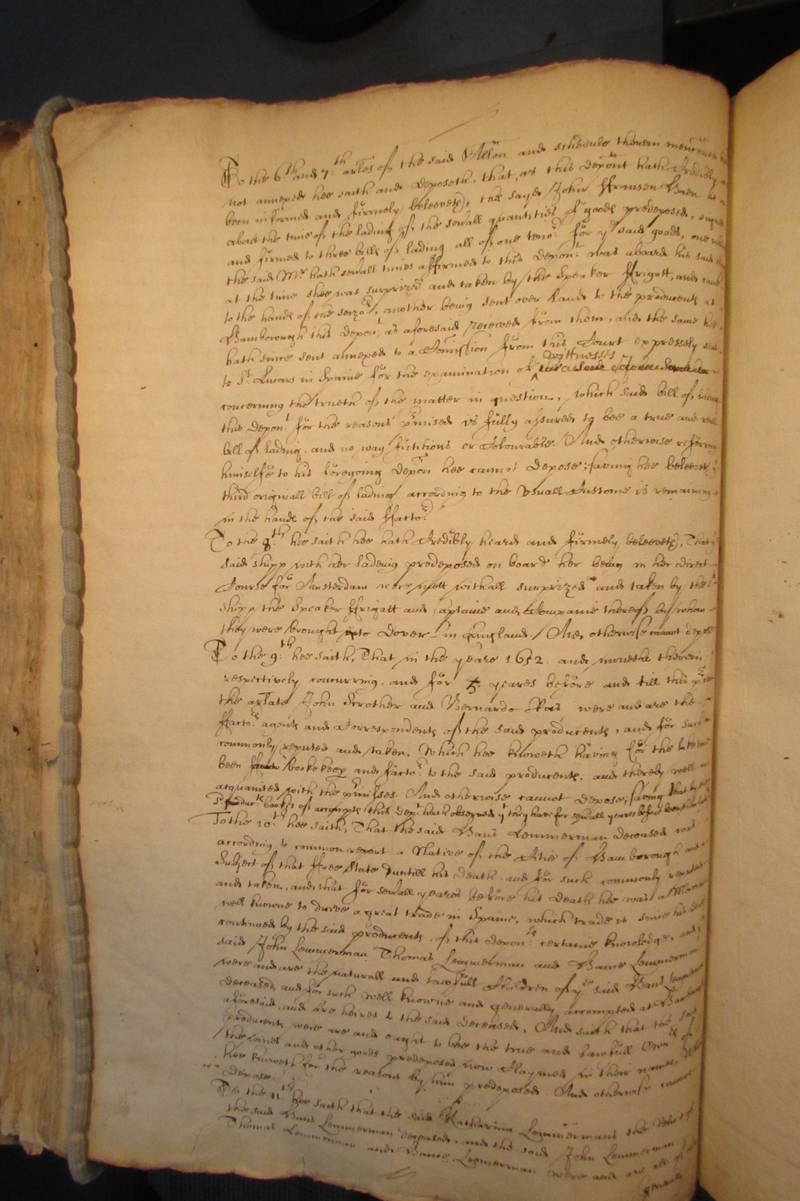 To the 6th and 7th arles of the said Allon and schedule therein
not annexed hee saith and deposeth, that, as this depont hath credibly
been informed and firmely beleeveth, the sayd John Harmsen Baen
about the time of the lading of the severall quantities of goods predeposed,
and firmed to three bills of lading all of one tenor for ye said goods, one
the said Mr hath severall times affirmed to this depont was aboard his said
at the time shee was surprized and taken by the Speaker ffrigatt, and
to the hands of the another being sent over land to the producents at
Hamborough this depont as aforesaid received from them, and the same
hath since sent annexed to a Commission from this Court expressly
to St Lucars in Spaine for the examination of wittnesses
concerning the trueth of the matter in question, which said bill of lading
this depont for the reasons premised is fully assured to bee a true and reall
bill of lading, and no way fictitious or Colourable. And otherwise referring
himselfe to his foregoing depon hee cannot depose; saving hee beleeveth
third originall bill of lading according to the usuall Custome is remaining
in the hands of the said ffactor
To the 8th hee saith hee hath credibly heard and firmely beleeveth, That
said shipp with her ladeing predeposed on board her being in her direct
Course for Amsterdam were mett withall surprized and taken by the
shipp the Speaker ffrigatt and Captaine and Companie thereof by whom
they were brought into Dover in England. And otherwise cannot depose
To the 9th hee saith, That in the yeare 1652. and moneths therein
respectively concurring, and for yeares before and till this
the arlate John Strother and Bernardo were and are the
ffactors agents and Correspondents of the said producents, and for such
commonly reputed and taken, Which hee knoweth having for the
been bookekeeper and factor to the said producents, and thereby well
acquainted with the premisses. And otherwise cannot depose, saving that by
producents bookes of accompts this depont hath observed yt they have for severall yeares before
To the 10th hee saith, That the said Hans Lemmerman deceased was
according to common report a Native of the Citie of Hamborough and
Subject of that ffree State untill his death and for such commonly reputed
and taken, and that for severall yeares before his death hee was a Merchant
well knowne to drive a great trade in Spaine, which trade is since his
continued by the said producents of this deponts certaine knowledge, and
said John Lemmerman Thomas Lemmerman and Hans Lemmerman
were and are the naturall and lawfull Children of ye said Hans Lemmerman
deceased and for such well knowne and generally accompted at Hamborough
aforesaid, and are heires to the said deceased. And saith that the said
producents were are and ought to bee the true and lawfull Owners of
the lands and other goods predeposed now Claymed in their names,
hee knoweth for the reasons by him predeposed. And otherwise cannot
depose.
To the 11th hee saith that the said Katherina Lemmermans the Relict of
the said Hans Lemmerman deceased, and the said John Lemmerman
Thomas Lemmerman and Hans Lemmerman were and are all of